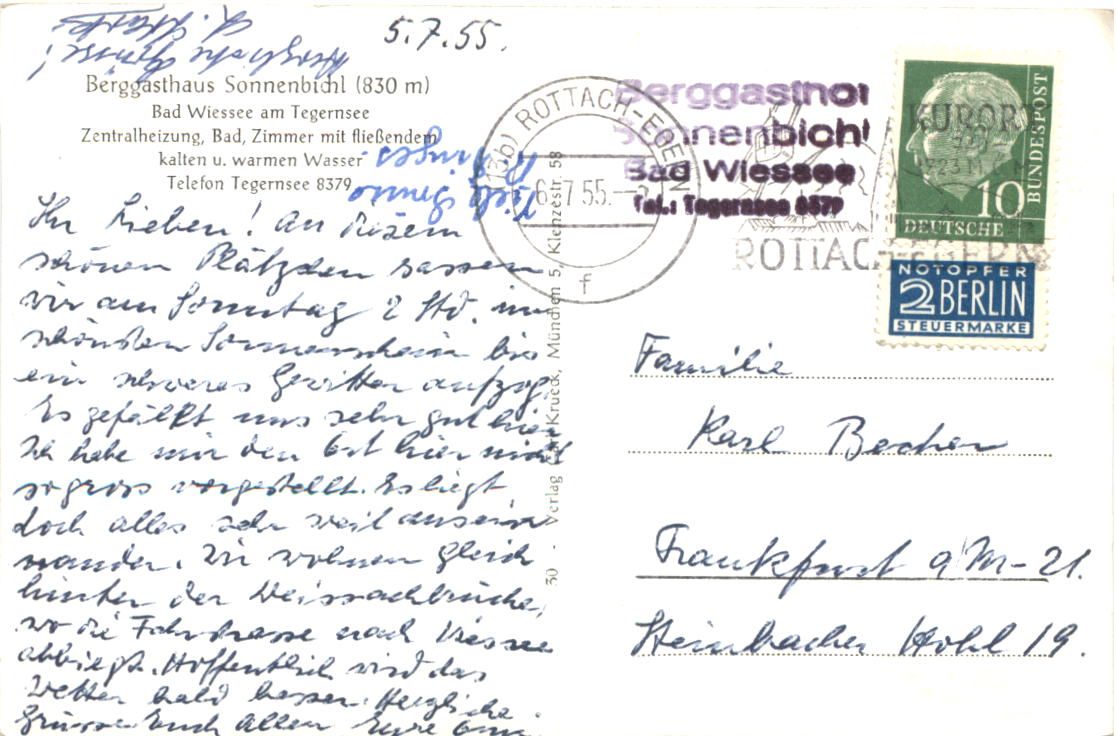 5.7.55.
Herzliche Grüsse!
Berggasthaus Sonnenbichl (830 m)
Bad Wiessee am Tegernsee
Zentralheizung, Bad, Zimmer mit fließendem
kalten u. warmen Wasser
Telefon Tegernsee 8379
Ihr Lieben! An diesem
schönen Plätzchen sassen
wir am Sonntag 2 Std. im
schönsten Sonnenschein bis
ein schweres Gewitter aufzog.
Es gefällt uns sehr gut hier
Ich habe mir den Ort hier nicht
so gross vorgestellt. Es liegt
doch alles sehr weit ausein
nander. Wir wohnen gleich
hinter der Weissachbrücke,
wo die Fahrstrasse nach Wiessee
abbiegt. Hoffentlich wird das
Wetter bald besser. Herzliche
Grüsse Euch Allen Eure
Viele
30 - Verlag Krueck, München 5, Klenzestr. 58
(13b) ROTTACH-EGERN
6.7.55.
f
Berggasthof
Sonnenbichl
Bad Wiessee
Tel.: Tegernsee 8379
KURORT
ROTTACH-EGERN
10
DEUTSCHE
BUNDESPOST
NOTOPFER
2 BERLIN
STEUERMARKE
Familie
Karl Becher
Frankfurt a/M-21.
Steinbacher Hohl 19.